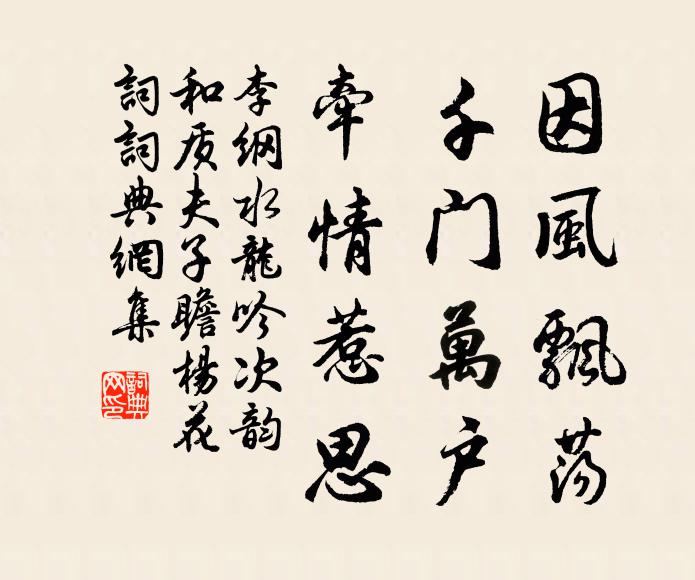 因風飄荡
千门萬户
牽情惹思
李纲水龍吟次韵
和质夫子瞻楊花
詞詞典網集
詞典
网印